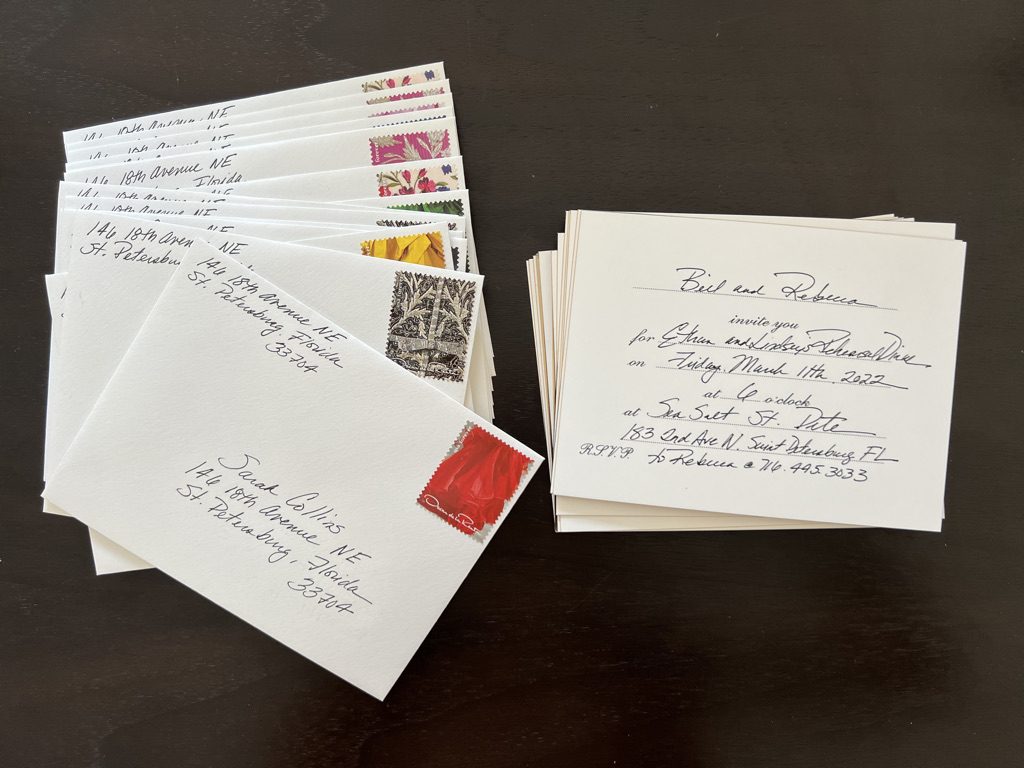 146 18th Avenue, NE
146 18th Avenue NE
Florida
146 18th Avenue NE
146 18th Avenue NE
St. Petersbu
146 18th Avenue NE
St. Petersburg Florida
33704
Sarah Collins
146 18th Avenue NE
St. Petersburg, Florida
33704
Oscar de la Renta
Bill and Rebecca
invite you
for Ethan and Lindsay's Rehearsal Dinner
on Friday, March 11th, 2022
at 6 o'clock
at Sea Salt St. Pete
183 2nd Ave N. Saint Petersburg FL
R.S.V.P. to Rebecca @ 716.445.3033